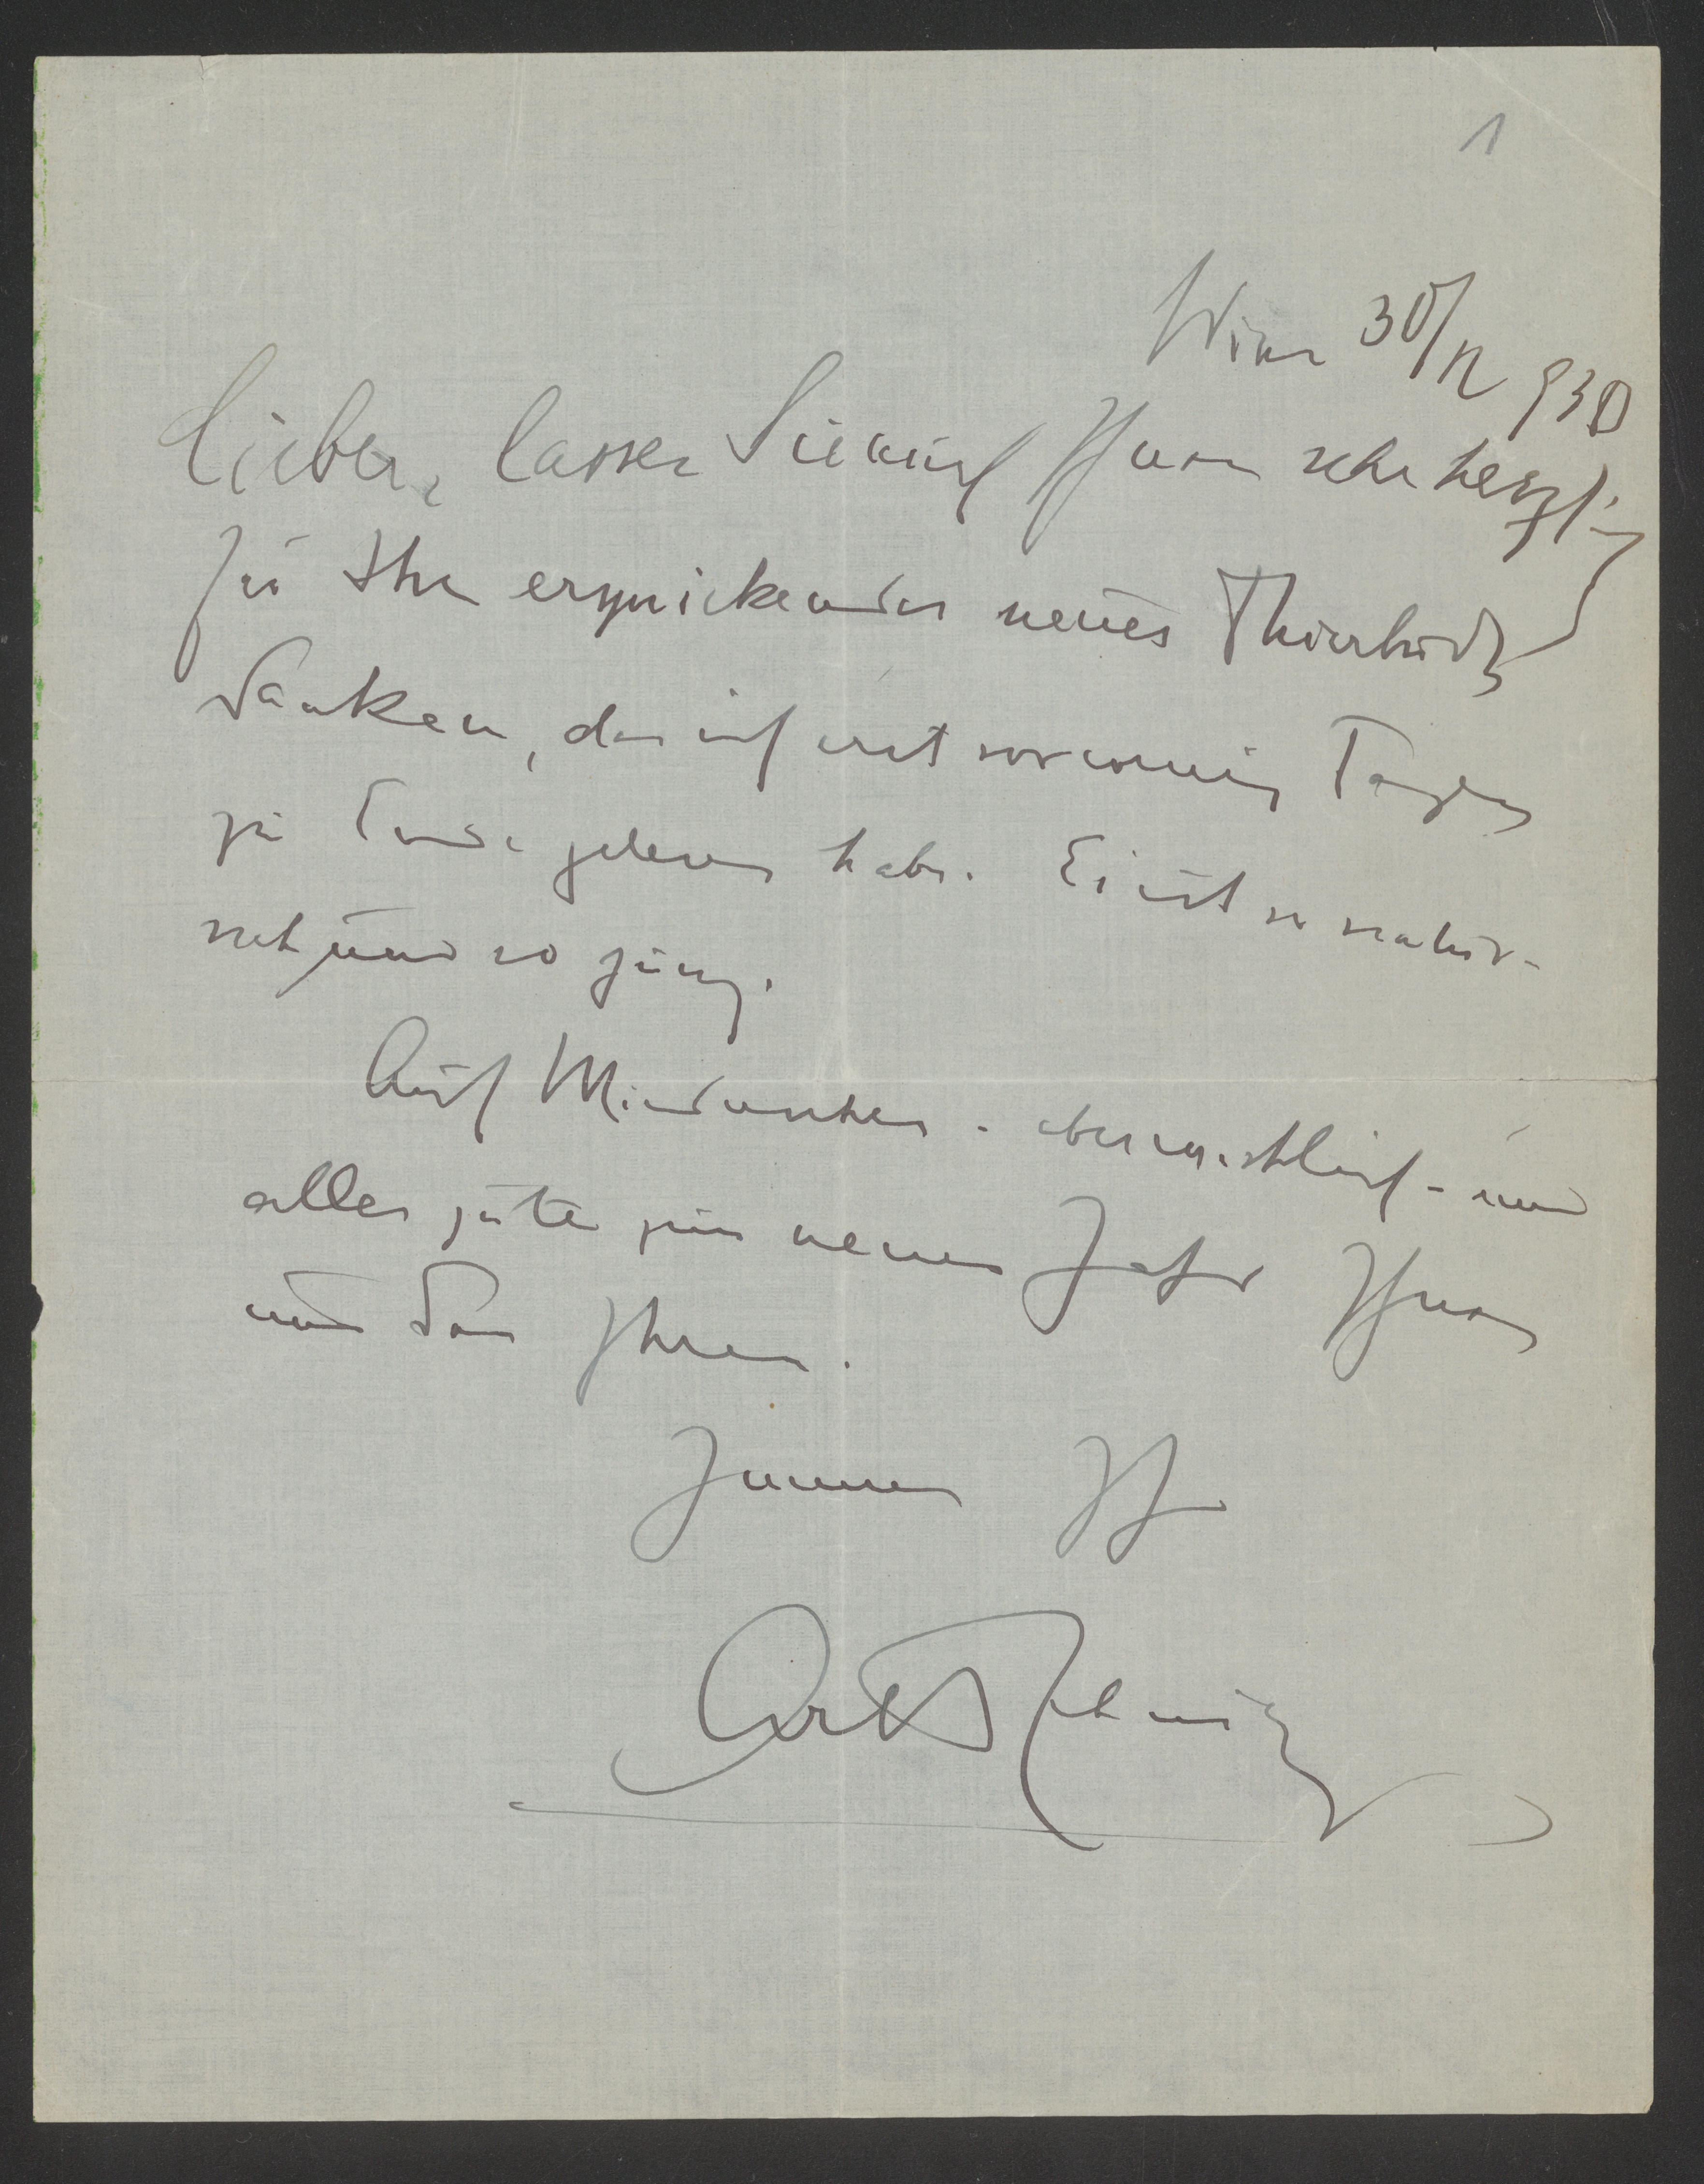 1
Wien 30/12 930
Lieber, lassen Sie mich Ihnen sehr herzlich
für Ihr erquickendes neues Thierbuch
danken, das ich erst vor wenig Tagen
zu Ende gelesen habe. Es ist so natur-
nah und so jung.
Auf Wiedersehen - aber wirklich - und
alles gute zum neuen Jahr Ihnen
und den Ihren.
Immer Ihr